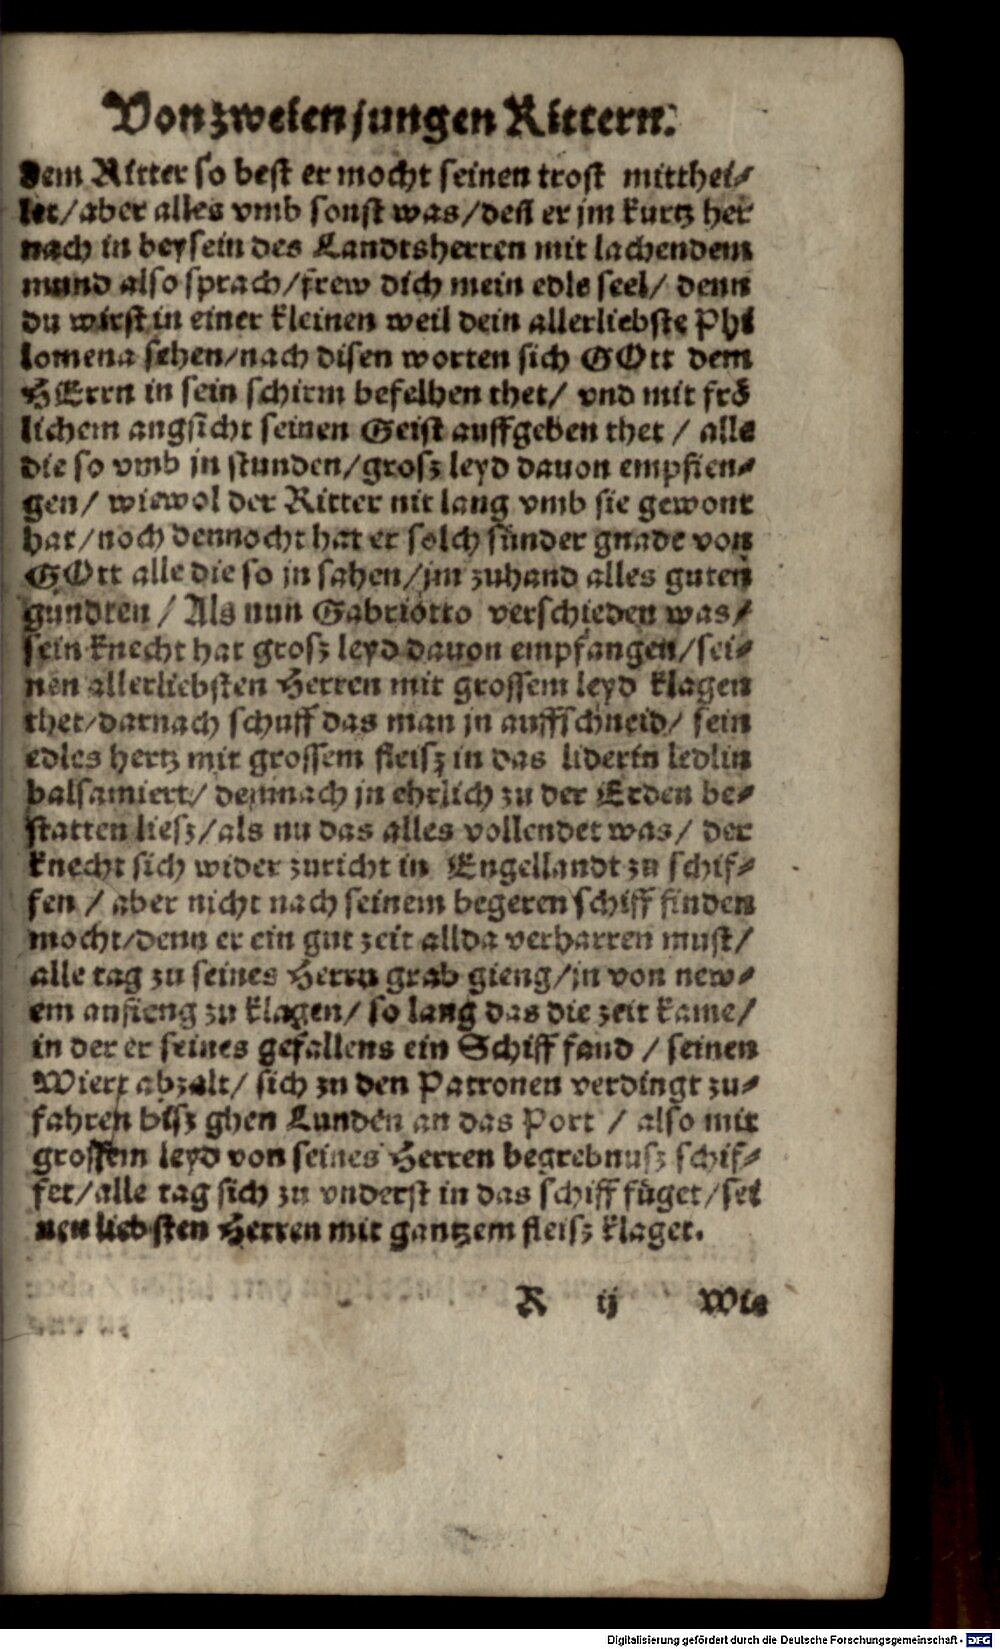 Von zweien jungen Rittern.
dem Ritter so best er mocht seinen trost mitthei-
let/ aber alles vmb sonst was/ deñ er jm kurtz her
nach in beysein des Landtsherren mit lachendem
mund also sprach/ frew dich mein edle seel/ denn
du wirst in einer kleinen weil dein allerliebste Phi
lomena sehen/ nach disen worten sich GOtt dem
HErrn in sein schirm befelhen thet/ vnd mit frö
lichem angsicht seinen Geist auffgeben thet / alle
die so vmb jn stunden/ grosz leyd dauon empfien-
gen/ wiewol der Ritter nit lang vmb sie gewont
hat/ noch dennocht hat er solch sunder gnade von
GOtt alle die so jn sahen/ jm zuhand alles guten
gundten / Als nun Gabriotto verschieden was/
sein knecht hat grosz leyd dauon empfangen/ sei-
nen allerliebsten Herren mit grossem leyd klagen
thet/ darnach schuff das man jn auffschneid/ sein
edles hertz mit grossem fleisz in das liderin ledlin
balsamiert/ demnach jn ehrlich zu der Erden be-
statten liesz/ als nu das alles vollendet was/ der
knecht sich wider zuricht in Engellandt zu schif-
fen / aber nicht nach seinem begeren schiff finden
mocht/ denn er ein gut zeit allda verharren must/
alle tag zu seines Herrn grab gieng/ jn von new-
em anfieng zu klagen/ so lang das die zeit kame/
in der er seines gefallens ein Schiff fand / seinen
Wiert abzalt/ sich zu den Patronen verdingt zu-
fahren bisz ghen Lunden an das Port / also mit
grossem leyd von seines Herren begrebnusz schif-
fet/ alle tag sich zu vnderst in das schiff füget/ sei
nen liebsten Herren mit gantzem fleisz klaget.
R ij Wie
Digitalisierung gefördert durch die Deutsche Forschungsgemeinschaft - DFG